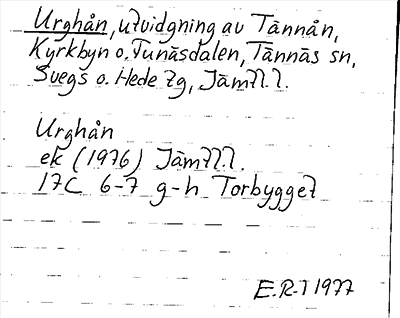 Urghån, utvidgning av Tännån,
Kyrkbyn o. Funäsdalen, Tännäs sn,
Svegs o. Hede tg, Jämtl.l.
Urghån
ek (1976) Jämtl.l.
17C 6-7 g-h Torbygget
E.R-T 1977